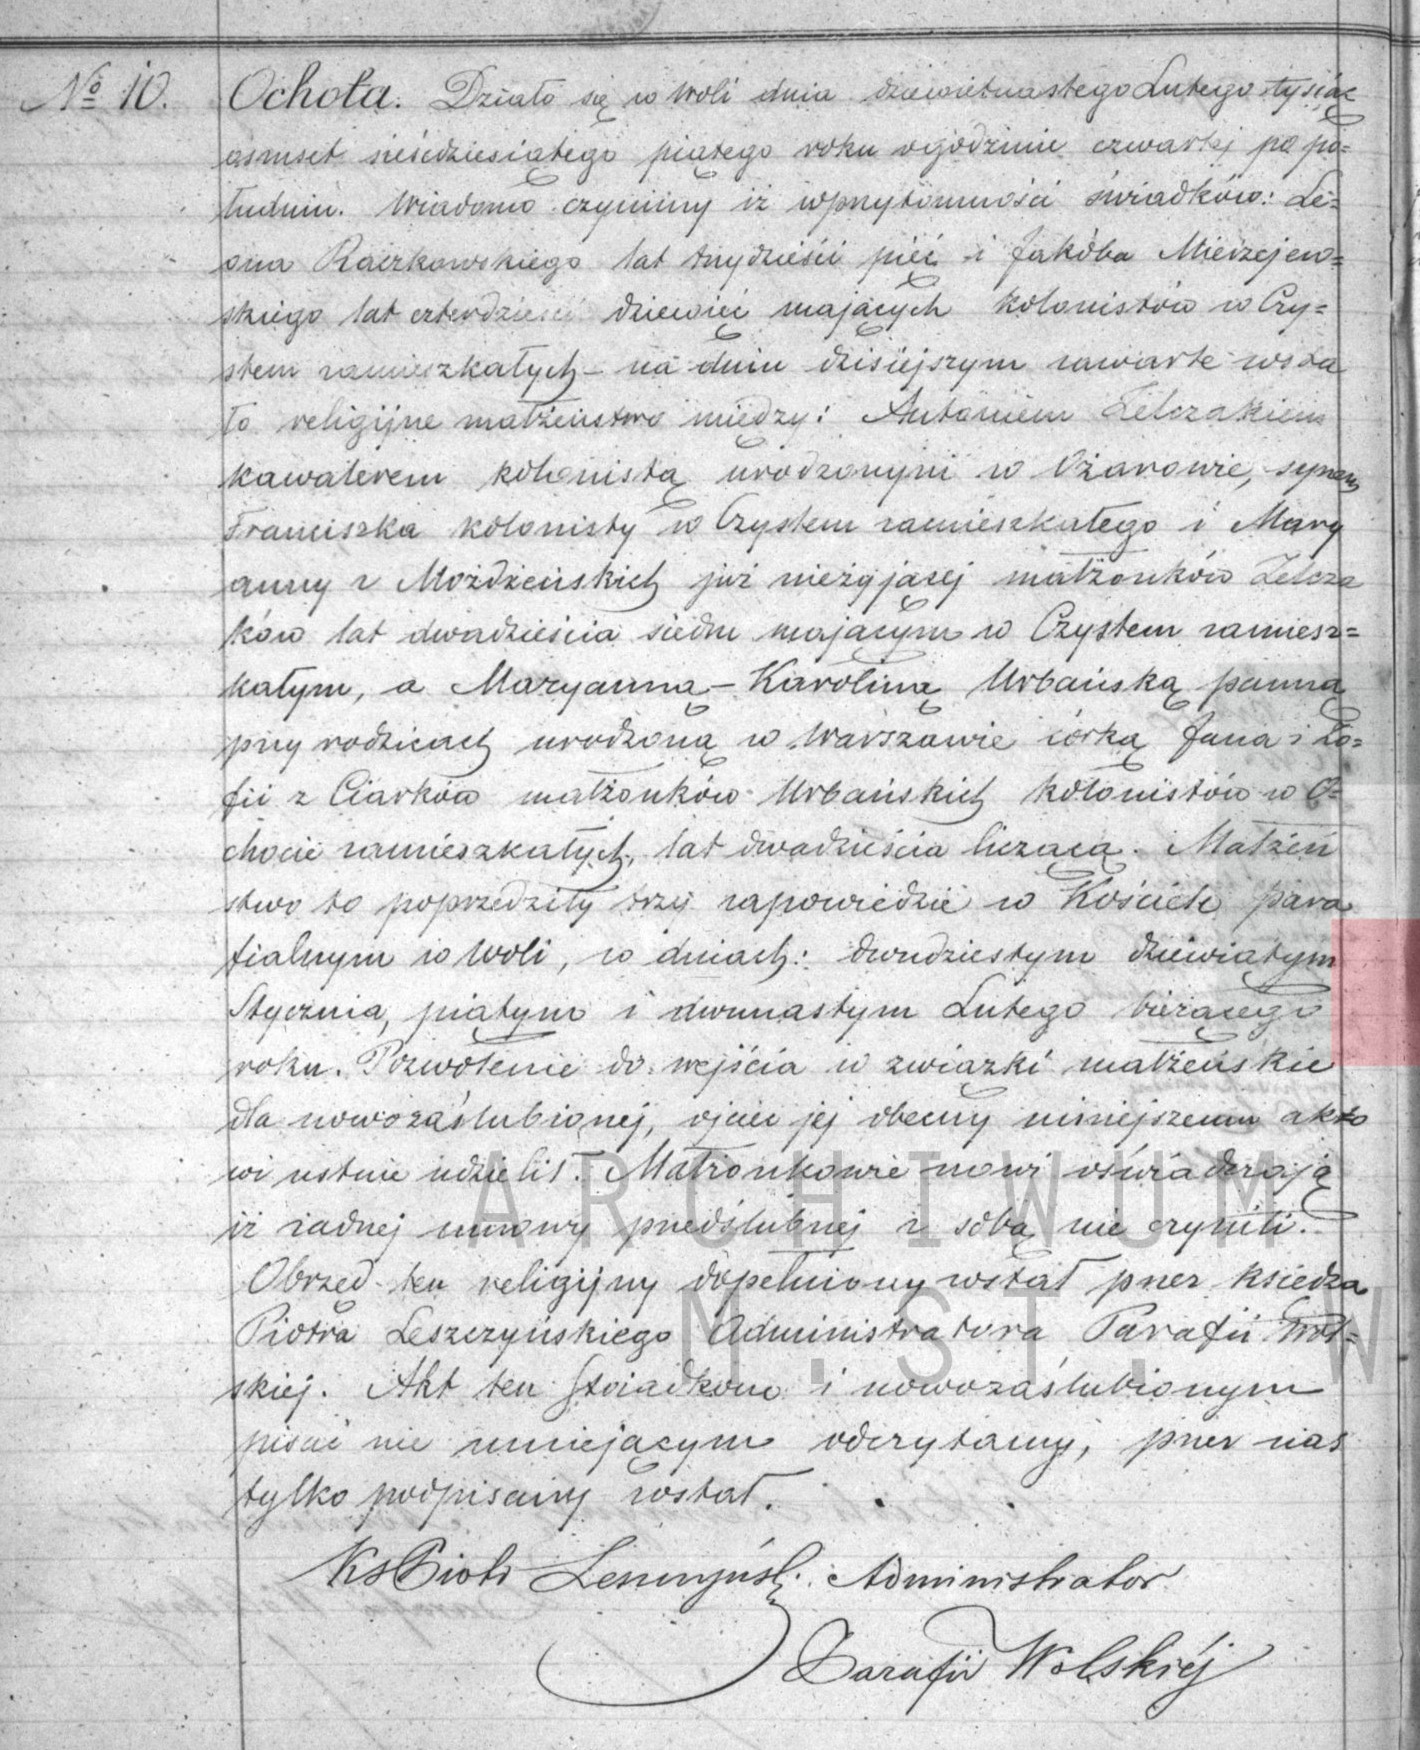 № 10. Ochota. Działo się w Woli dnia dziewietnastego Lutego tysiąc
ośmset sześćdziesiątego piątego roku o godzinie czwartej po po=
łudniu. Wiadomo czynimy iż w przytomności świadków: Le=
ona Raczkowskiego lat trzydzieści pięć i Jakóba Mierzejew=
skiego lat czterdzieści dziewięć mających kolonistów w Czy=
stem zamieszkałych – na dniu dzisiejszym zawarte zosta
ło religijne małżeństwo między: Antonim Zelczakiem
kawalerem kolonistą urodzonym w Ożarowie, synem
Franciszka kolonisty w Czystem zamieszkałego i Mary
anny z Moździeńskich już nieżyjącej małżonków Zelcza
ków lat dwadzieścia siedm mającym w Czystem zamiesz=
kałym, a Maryanną – Karoliną Urbańską panną
przy rodzicach urodzoną w Warszawie córką Jana i Zo=
fii z Ciarków małżonków Urbańskich kolonistów w O=
chocie zamieszkałych, lat dwadzieścia liczącą. Małżeń
stwo to poprzedziły trzy zapowiedzie w Kościele para
fialnym w Woli, w dniach: dwudziestym dziewiątym
Stycznia, piątym i dwunastym Lutego bieżącego
roku. Pozwolenie do wejścia w związki małżeńskie
dla nowozaślubionej, ojciec jej obecny niniejszemu akto
wi ustnie udzielił. Małżonkowie nowi oświadczają
iż żadnej umowy przedślubnej z sobą nie czynili.
Obrzęd ten religijny dopełniony został przez księdza
Piotra Leszczyńskiego Administratora Parafii Wol=
skiej. Akt ten Świadkom i nowozaślubionym
pisać nie umiejącym odczytany, przez nas
tylko podpisany został.
Ks Piotr Leszczyński Administrator
Parafii Wolskiéj
ARCHIWUM
M. ST. W